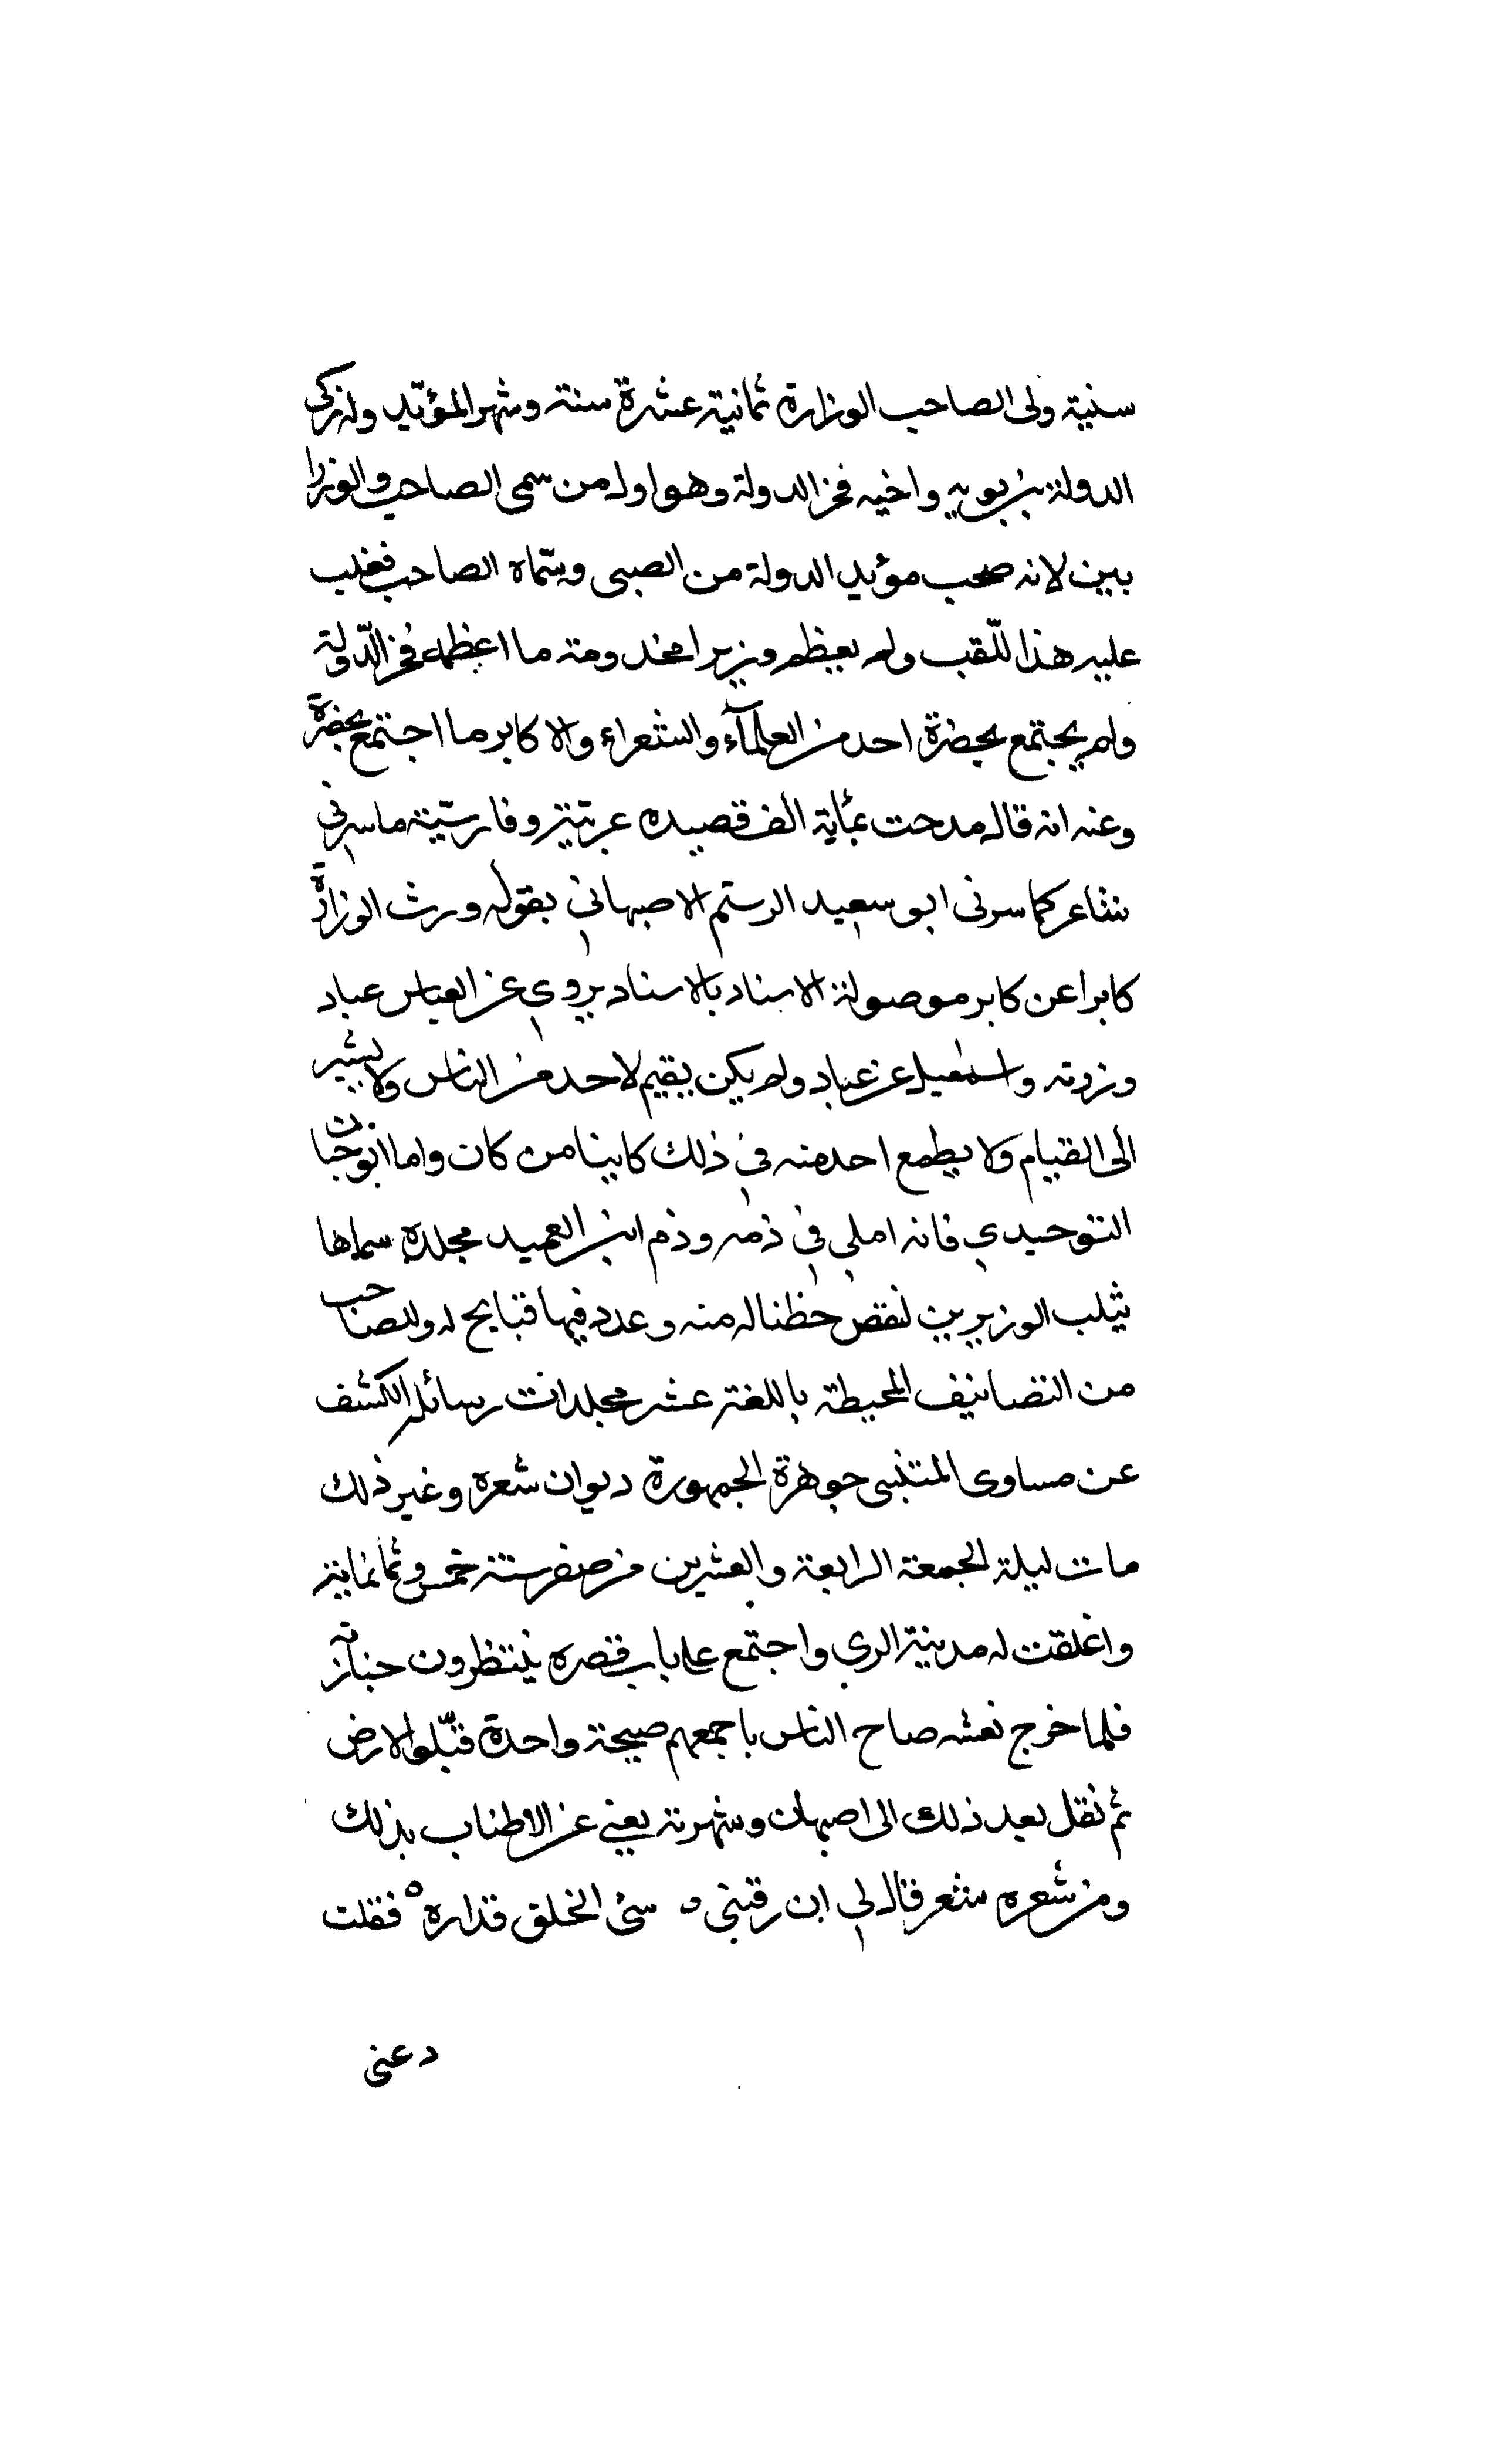 سنية ولى الصاحب الوزارة ثمانية عشرة سنة وشهر المؤيد ولد ركن
الدولة بن بويه واخيه فخر الدولة وهو اول من سمى الصاحب والوزرا
بين لانه صحب مؤيد الدولة من الصبى وسماه الصاحب فغلب
عليه هذا اللقب ولم يعظم وزيرا مخدومة ما اعظمه فخر الدولة
ولم يجتمع بحضرة احد من العلمآء والشعراء والاكابر ما اجتمع بحضرة
وعنه انه قال مدحت بمأية الف قصيده عربية وفارسية ما سرنى
شاعر كما سرنى ابو سعيد الرستم الاصبهانى بقوله ورث الوزارة
كابرا عن كابر موصولة الاسناد بالاسناد يروى عن العباس عباد
وزرته واسمعيل عن عباد ولم يكن يقيم لاحد من الناس ولا يشير
الى القيام ولا يطمع احد منه في ذلك كاينا من كان واما ابو حيان
التوحيدي فانه املى في ذمه وذم ابن العميد مجلدة سماها
ثلب الوزيرين لنقص حظناله منه وعدد فيها قبايح له وللصاحب
من التصانيف المحيطة باللغة عشر مجلدات رسائله الكشف
عن مساوى المتنبى جوهرة الجمهورة ديوان شعره وغير ذلك
مات ليلة الجمعة الرابعة والعشرين من صفر سنة خمس وثمانماية
واغلقت له مدينة الري واجتمع على باب قصره ينتظرون جنازته
فلما خرج نعشه صاح الناس باجمعهم صيحة واحدة قبلوا الارض
ثم نقل بعد ذلك الى اصبهان وشهرته يغنى عن الاطناب بذلك
ومن شعره شعر قال لي ان رقيبى ٥ سئ الخلق فداره ٥ فقلت
دعنى